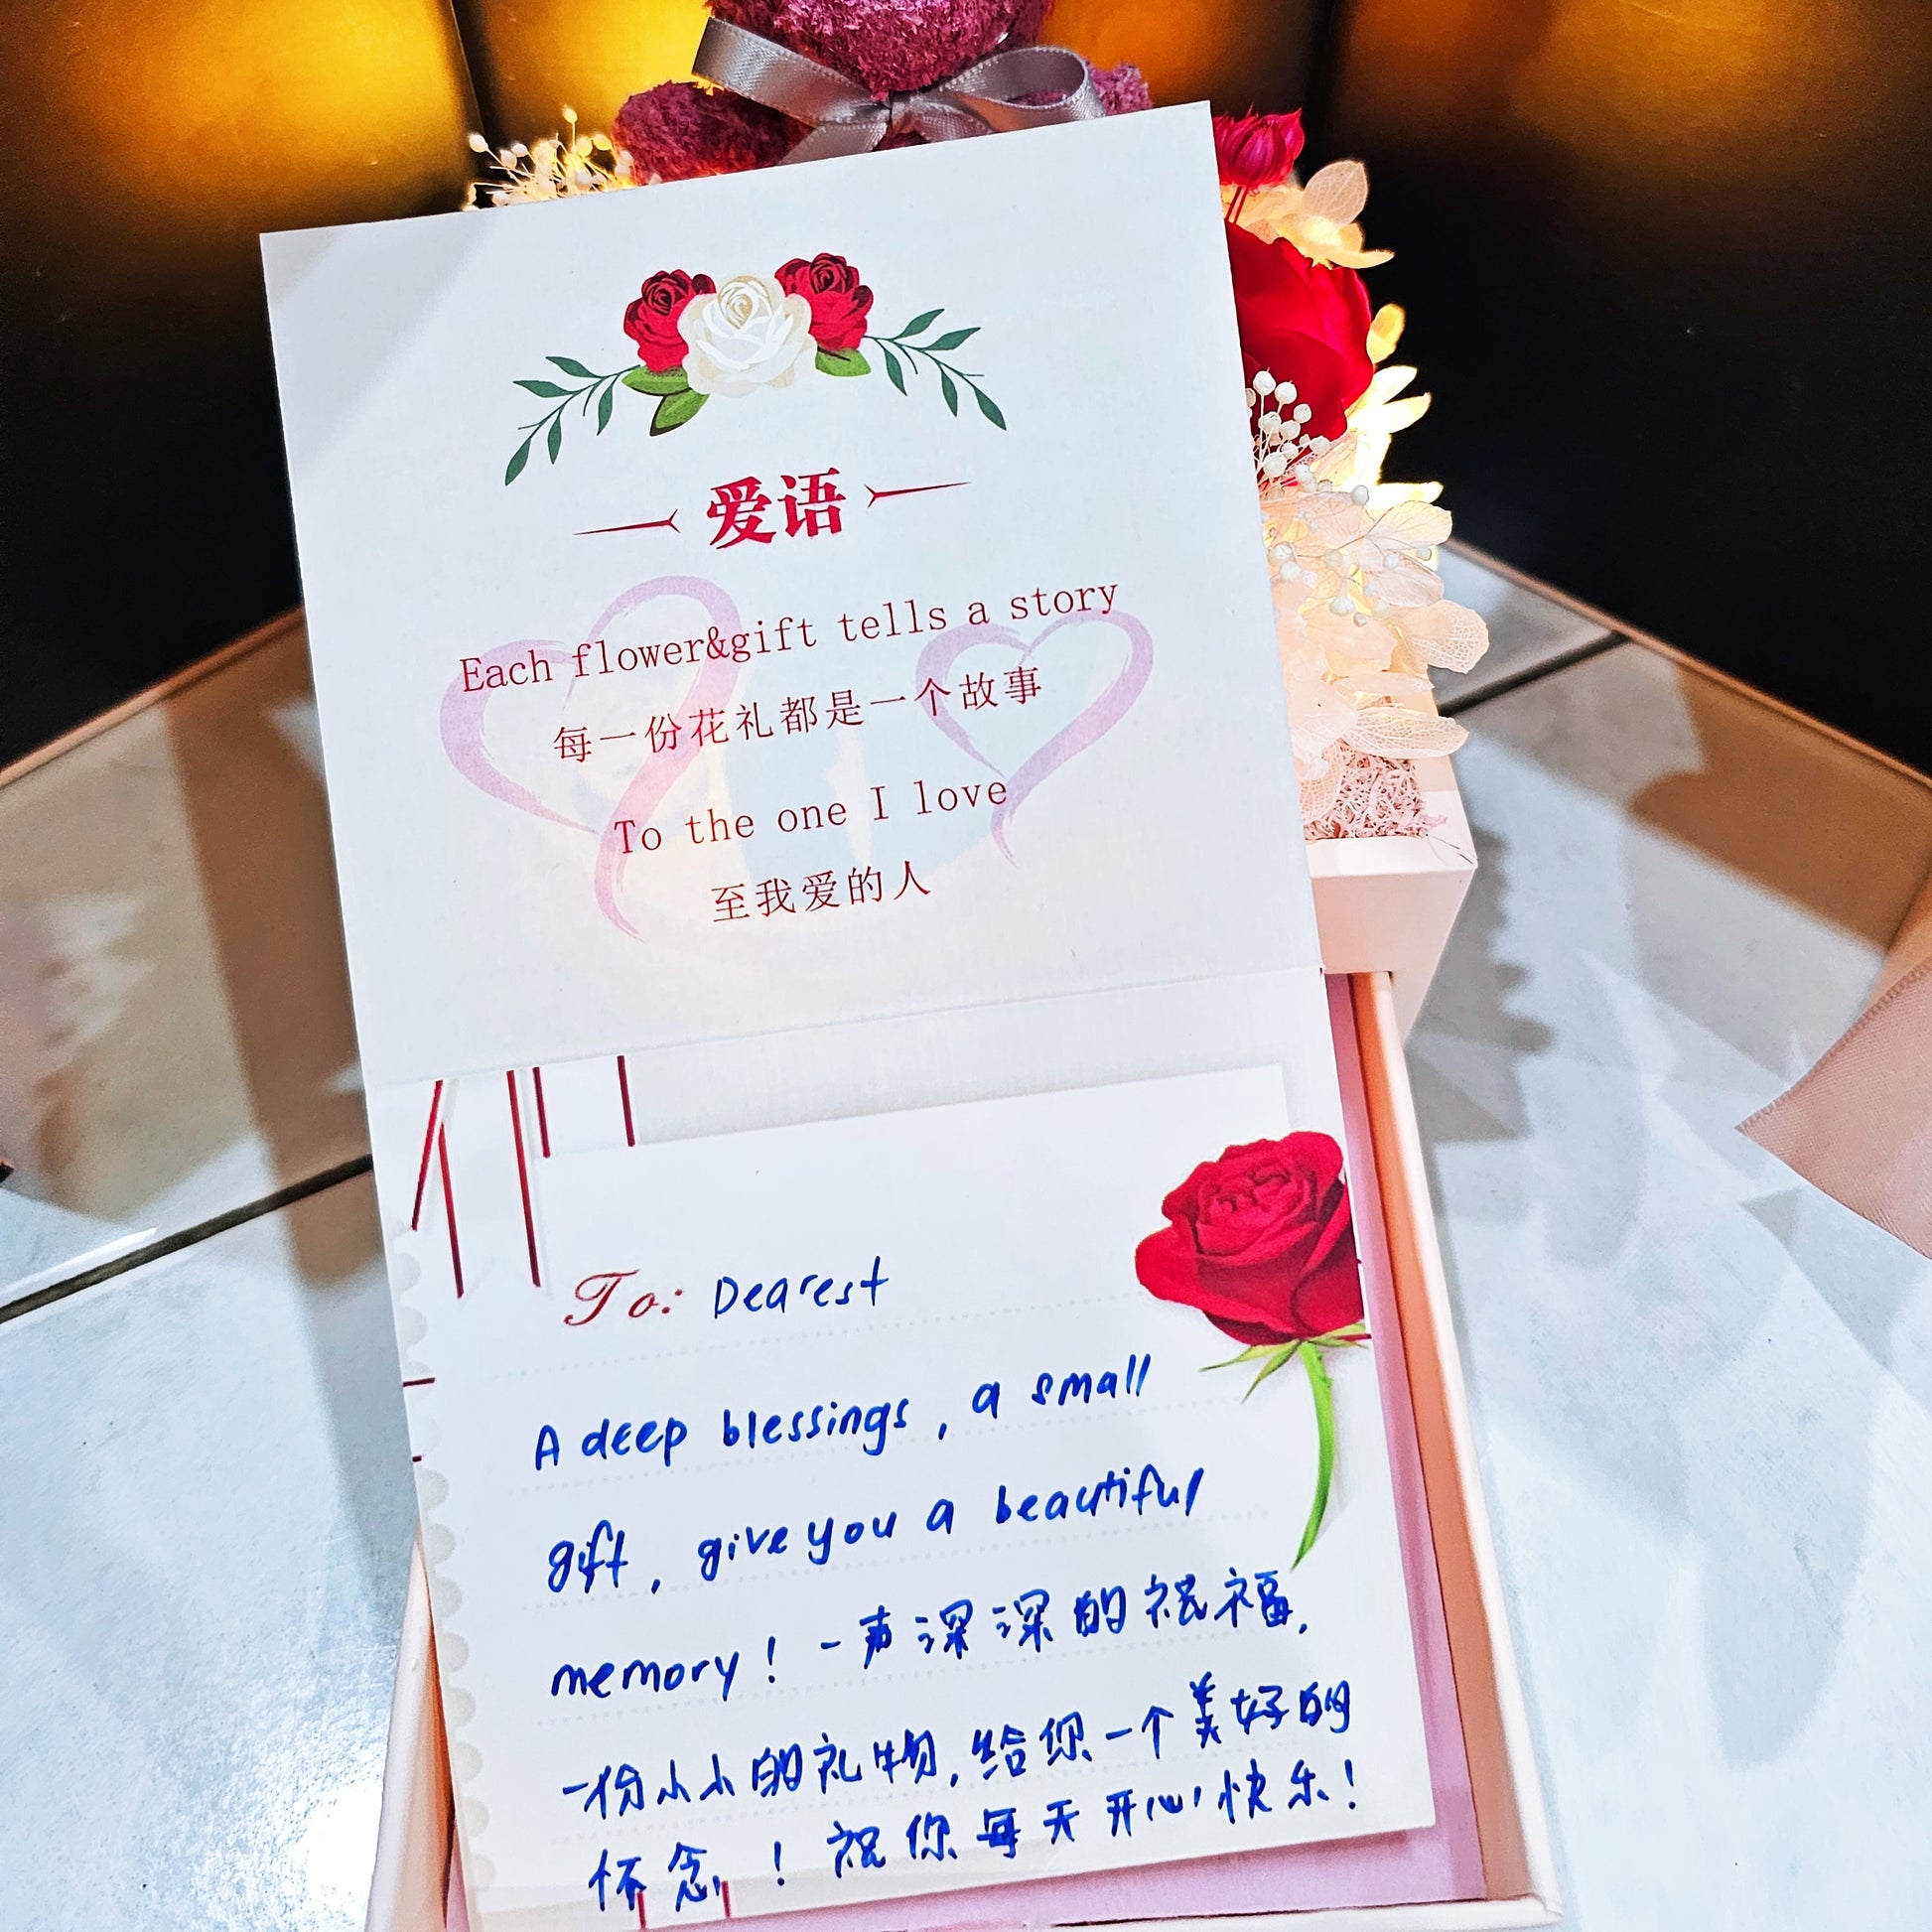 爱语
Each flower&gift tells a story
每一份花礼都是一个故事
To the one I love
至我爱的人
To: Dearest
A deep blessings, a small
gift, give you a beautiful
memory! 一声深深的祝福,
一份小小的礼物,给你一个美好的
怀念! 祝你每天开心快乐!